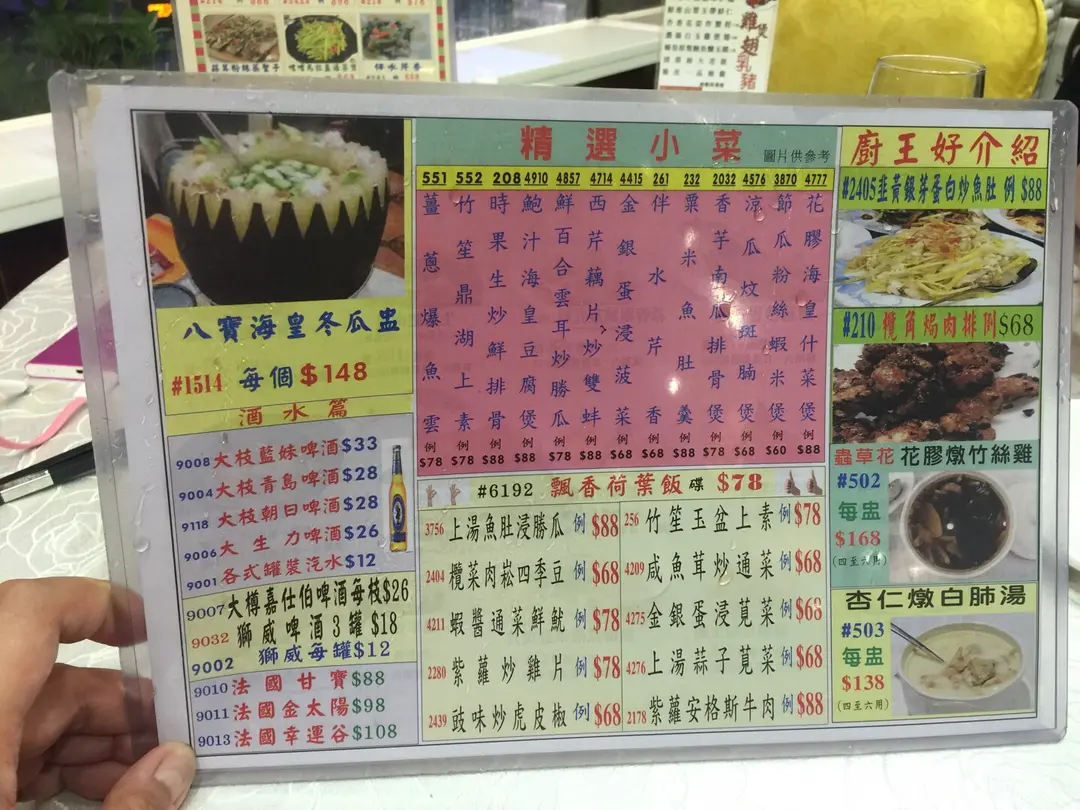 八寶海皇冬瓜盅
#1514 每個$148
酒水篇
9008大枝藍妹啤酒$33
9004大枝青島啤酒$28
9118大枝朝日啤酒$28
9006大生力啤酒$26
9001各式罐裝汽水$12
9007大樽嘉仕伯啤酒每枝$26
9032獅威啤酒3罐$18
9002獅威每罐$12
9010法國甘寶$88
9011法國金太陽$98
9013法國幸運谷$108
精選小菜 圖片供參考
551 薑蔥爆魚雲 例 $78
552 竹笙鼎湖上素 例 $78
208 時果生炒鮮排骨 例 $88
4910 鮑汁海皇豆腐煲 例 $88
4857 鮮百合雲耳炒勝瓜 例 $78
4714 西芹藕片炒雙蚌 例 $88
4415 金銀蛋浸菠菜 例 $68
261 伴水芹香 例 $68
232 粟米魚肚羹 例 $88
2032 香芋南瓜排骨煲 例 $78
4576 涼瓜炆斑腩煲 例 $68
3870 節瓜粉絲蝦米煲 例 $60
4777 花膠海皇什菜煲 例 $88
#6192 飄香荷葉飯 碟 $78
3756 上湯魚肚浸勝瓜 例 $88
2404 欖菜肉崧四季豆 例 $68
4211 蝦醬通菜鮮魷 例 $78
2280 紫蘿炒雞片 例 $78
2439 豉味炒虎皮椒 例 $68
256 竹笙玉盆上素 例 $78
4209 咸魚茸炒通菜 例 $68
4275 金銀蛋浸莧菜 例 $68
4276 上湯蒜子莧菜 例 $68
2178 紫蘿安格斯牛肉 例 $88
廚王好介紹
#2405韭黃銀芽蛋白炒魚肚 例 $88
#210 欖角焗肉排 例$68
蟲草花花膠燉竹絲雞
#502
每盅
$168
(四至六用)
杏仁燉白肺湯
#503
每盅
$138
(四至六用)